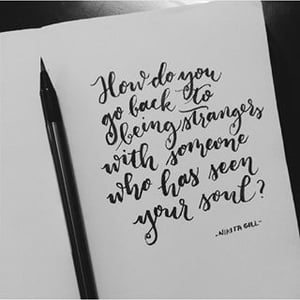 How do you
go back to
being strangers
with someone
who has seen
your soul?
-NIKITA GILL-